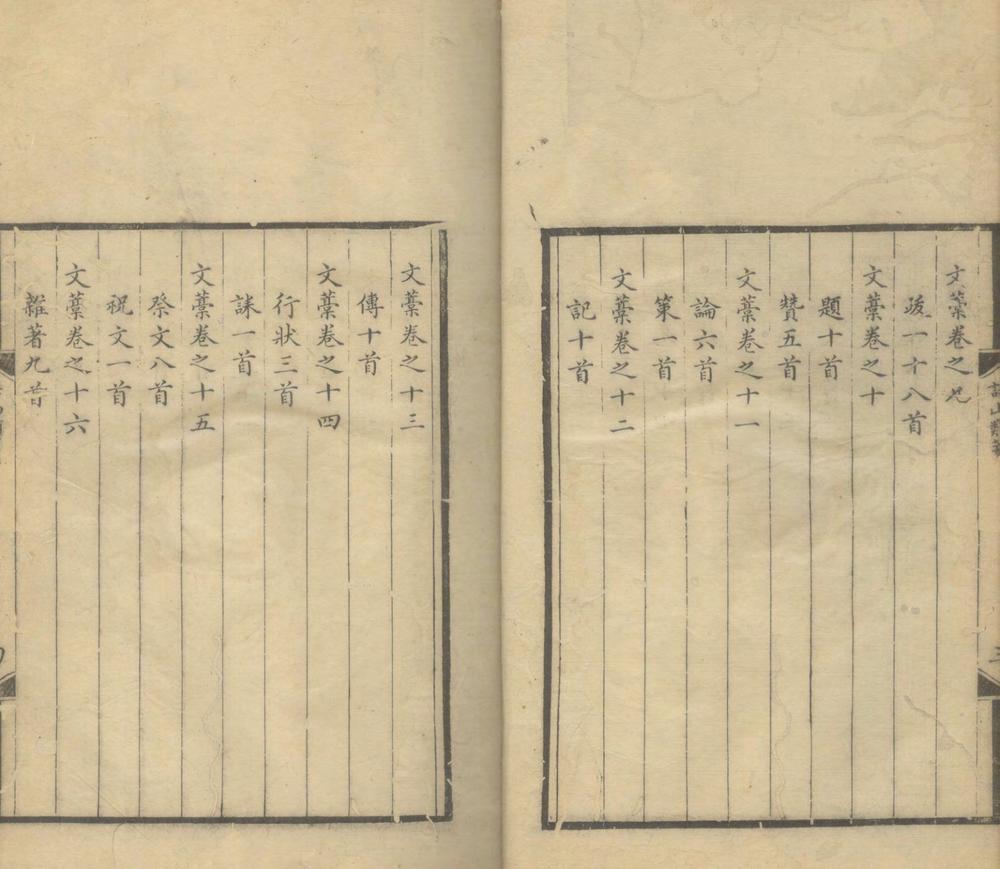 文藁卷之九
跋一十八首
文藁卷之十
題十首
贊五首
文藁卷之十一
論六首
策一首
文藁卷之十二
記十首
文藁卷之十三
傳十首
文藁卷之十四
行狀三首
誄一首
文藁卷之十五
祭文八首
祝文一首
文藁卷之十六
雜著九首